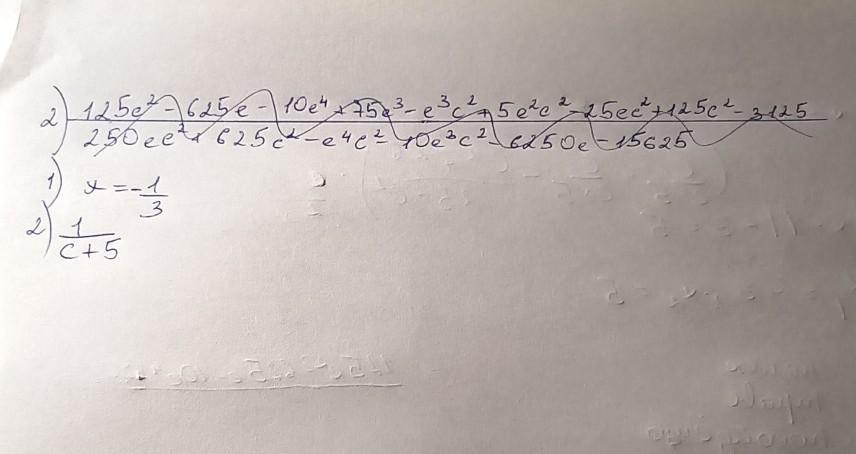 2) 125e² - 625e - 10e⁴ + 75e³ - e³c² + 5e²c² - 25ec² + 125c² - 3125
250ec² + 625c² - e⁴c² - 10e³c² - 6250e - 15625
1) x = -1/3
2) 1/(c+5)